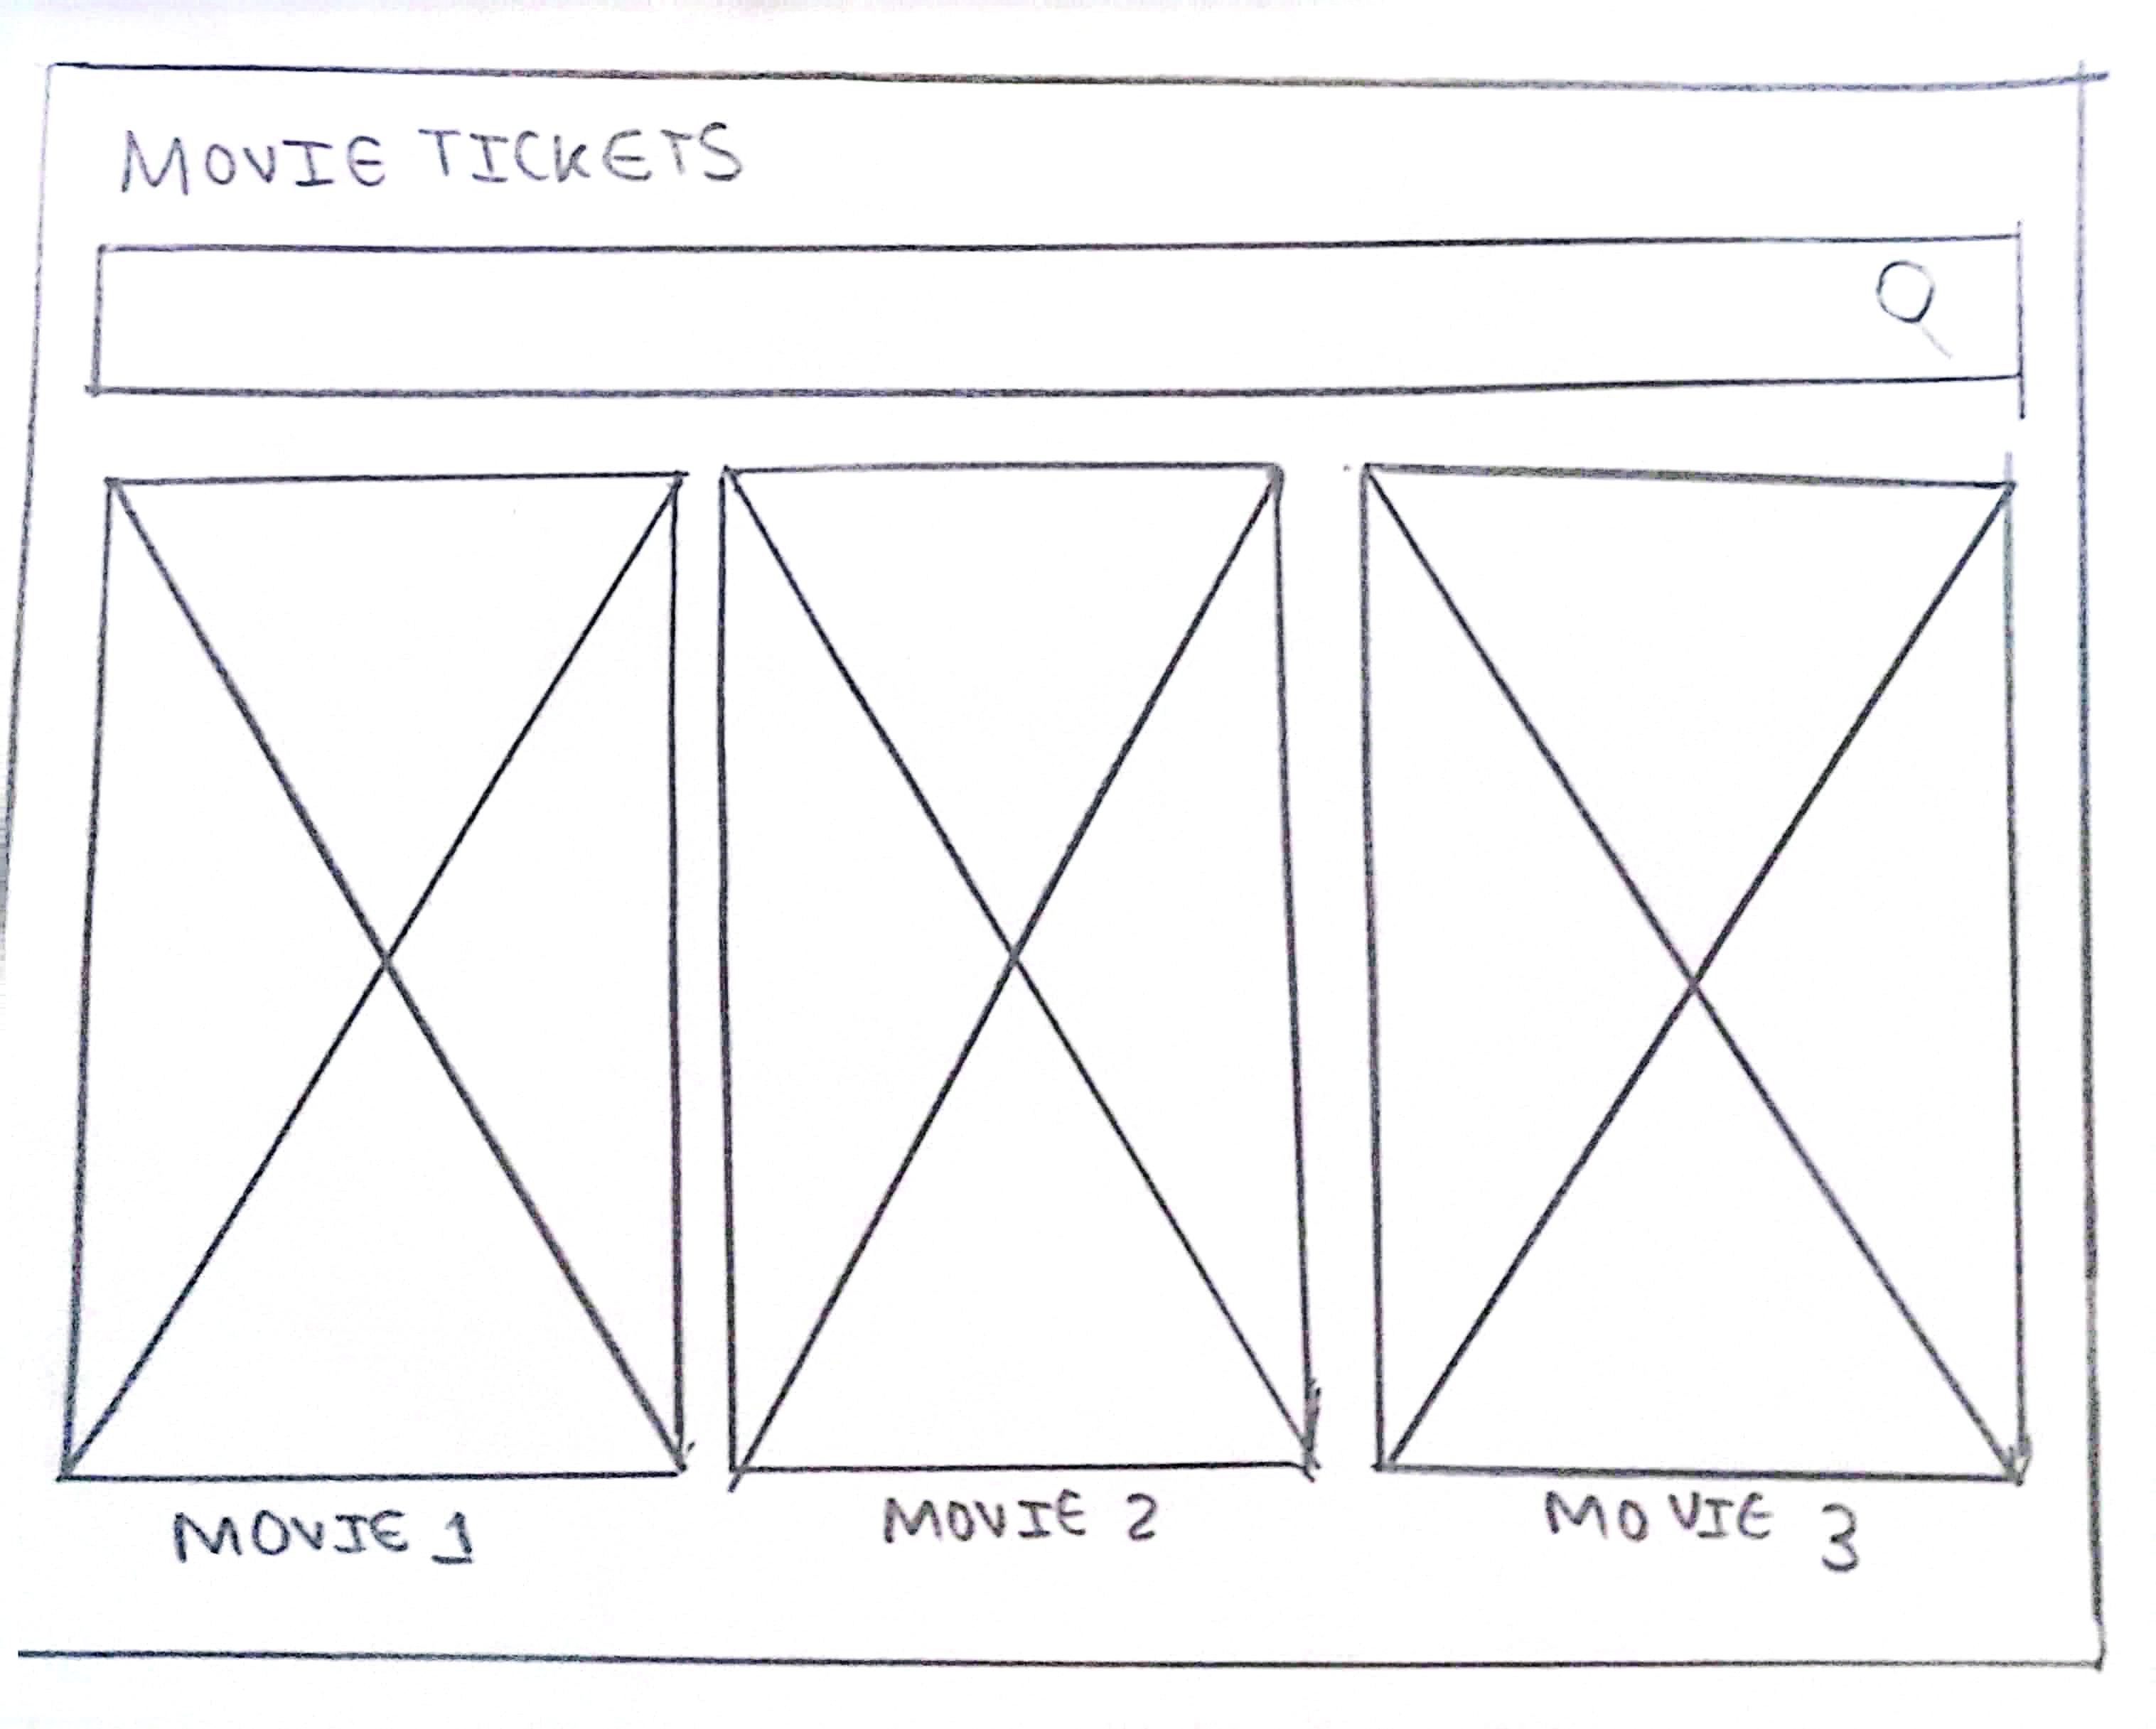 MOVIE TICKETS
MOVIE 1
MOVIE 2
MOVIE 3